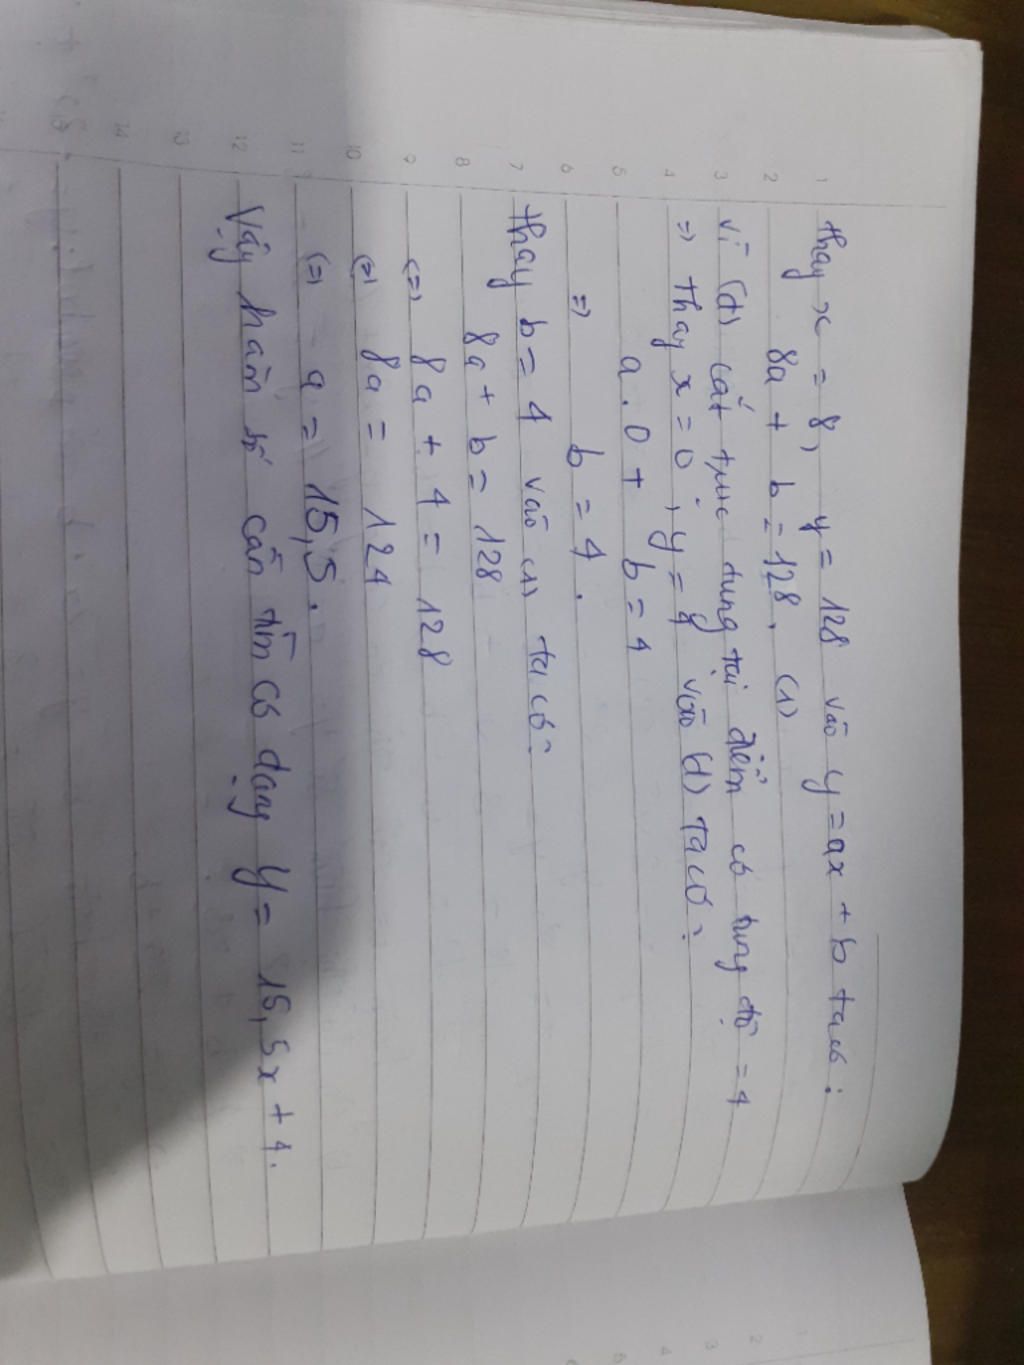 thay x = 8, y = 128 vào y = ax + b ta có :
8a + b = 128. (1)
Vì (d) cắt trục tung tại điểm có tung độ = 4
=> thay x = 0, y = 4 vào (d) ta có :
a . 0 + b = 4
=> b = 4 .
thay b = 4 vào (1) ta có :
8a + b = 128
(=) 8a + 4 = 128
(=) 8a = 124
(=) a = 15,5 .
Vậy hàm số cần tìm có dạng y = 15,5x + 4.